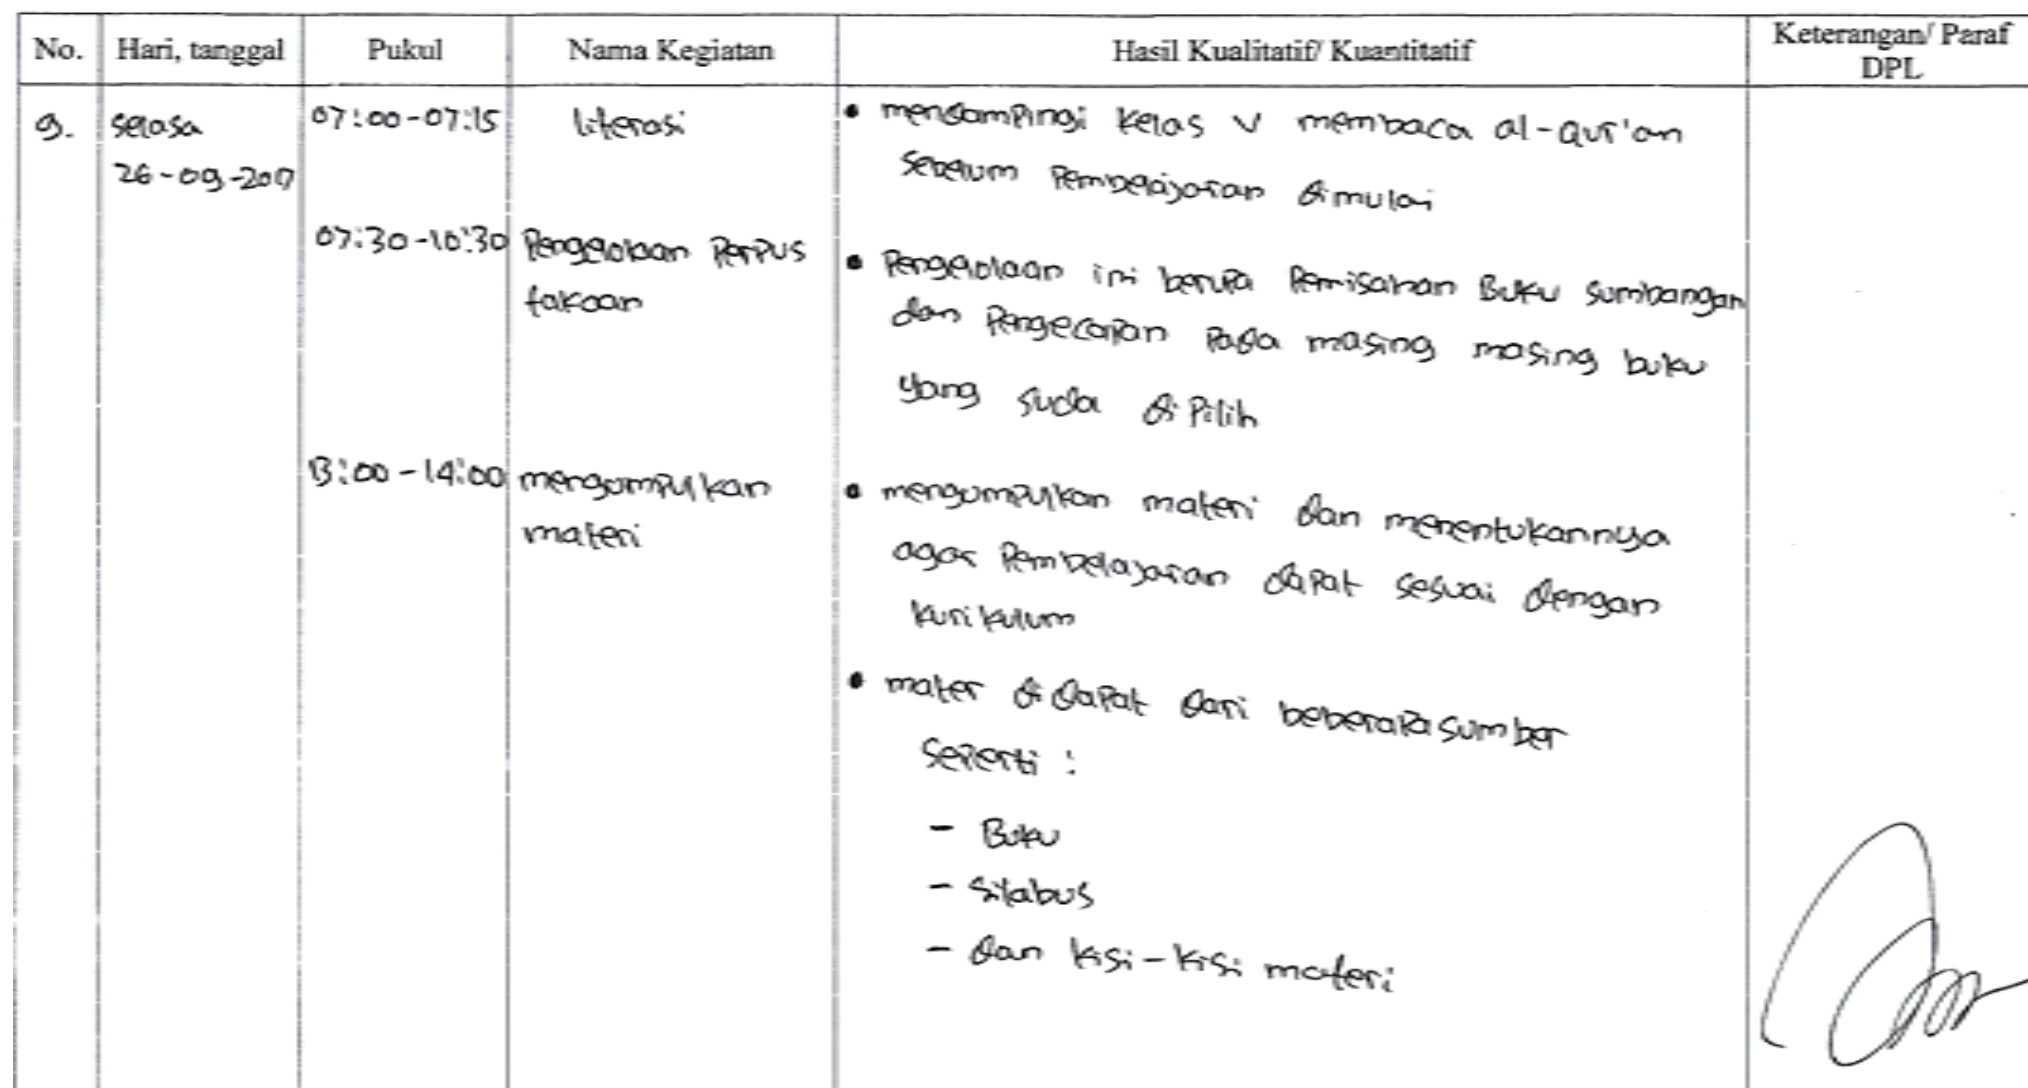 No. Hari, tanggal Pukul Nama Kegiatan Hasil Kualitatif/ Kuantitatif Keterangan/ Paraf DPL
9. selasa 07:00-07:15 literasi • mendampingi kelas V membaca al-qur'an
26-09-2017 sebelum Pembelajaran dimulai
07:30-10:30 Pengelolaan Perpus • Pengelolaan ini berupa Pemisahan Buku sumbangan
takaan dan Pengecapan Pada masing masing buku
yang suda di Pilih
13:00-14:00 mengumpulkan • mengumpulkan materi dan menentukannya
materi agar Pembelajaran dapat sesuai dengan
kurikulum
• mater di dapat dari beberapa sumber
seperti :
- Buku
- silabus
- dan kisi-kisi materi